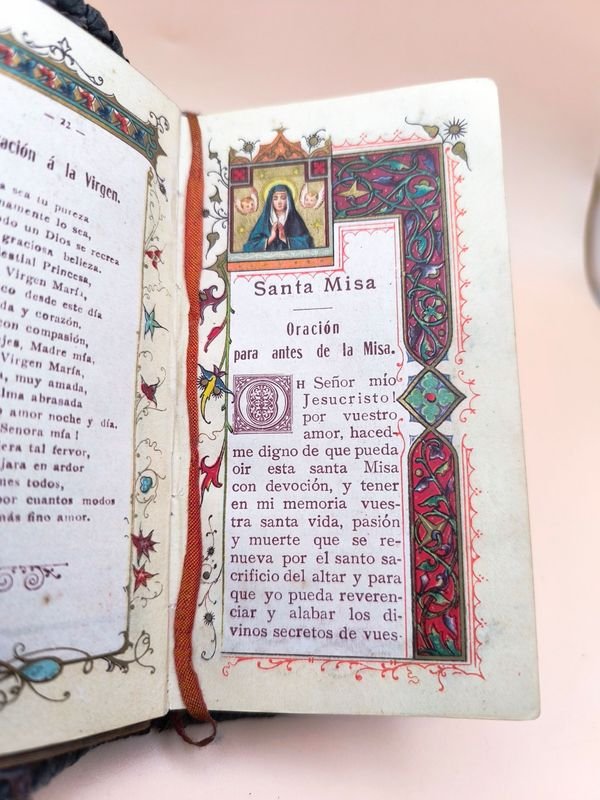 — 22 —
ación á la Virgen.
a sea tu pureza
namente lo sea,
do un Dios se recrea
graciosa belleza.
estial Princesa,
Virgen María,
co desde este día
da y corazón.
con compasión,
jes, Madre mía.
Virgen María,
a, muy amada,
lma abrasada
amor noche y día.
Senora mía!
era tal fervor,
jara en ardor
nes todos,
por cuantos modos
más fino amor.
Santa Misa
Oración
para antes de la Misa.
OH Señor mío
Jesucristo!
por vuestro
amor, haced-
me digno de que pueda
oir esta santa Misa
con devoción, y tener
en mi memoria vues-
tra santa vida, pasión
y muerte que se re-
nueva por el santo sa-
crificio del altar y para
que yo pueda reveren-
ciar y alabar los di-
vinos secretos de vues-